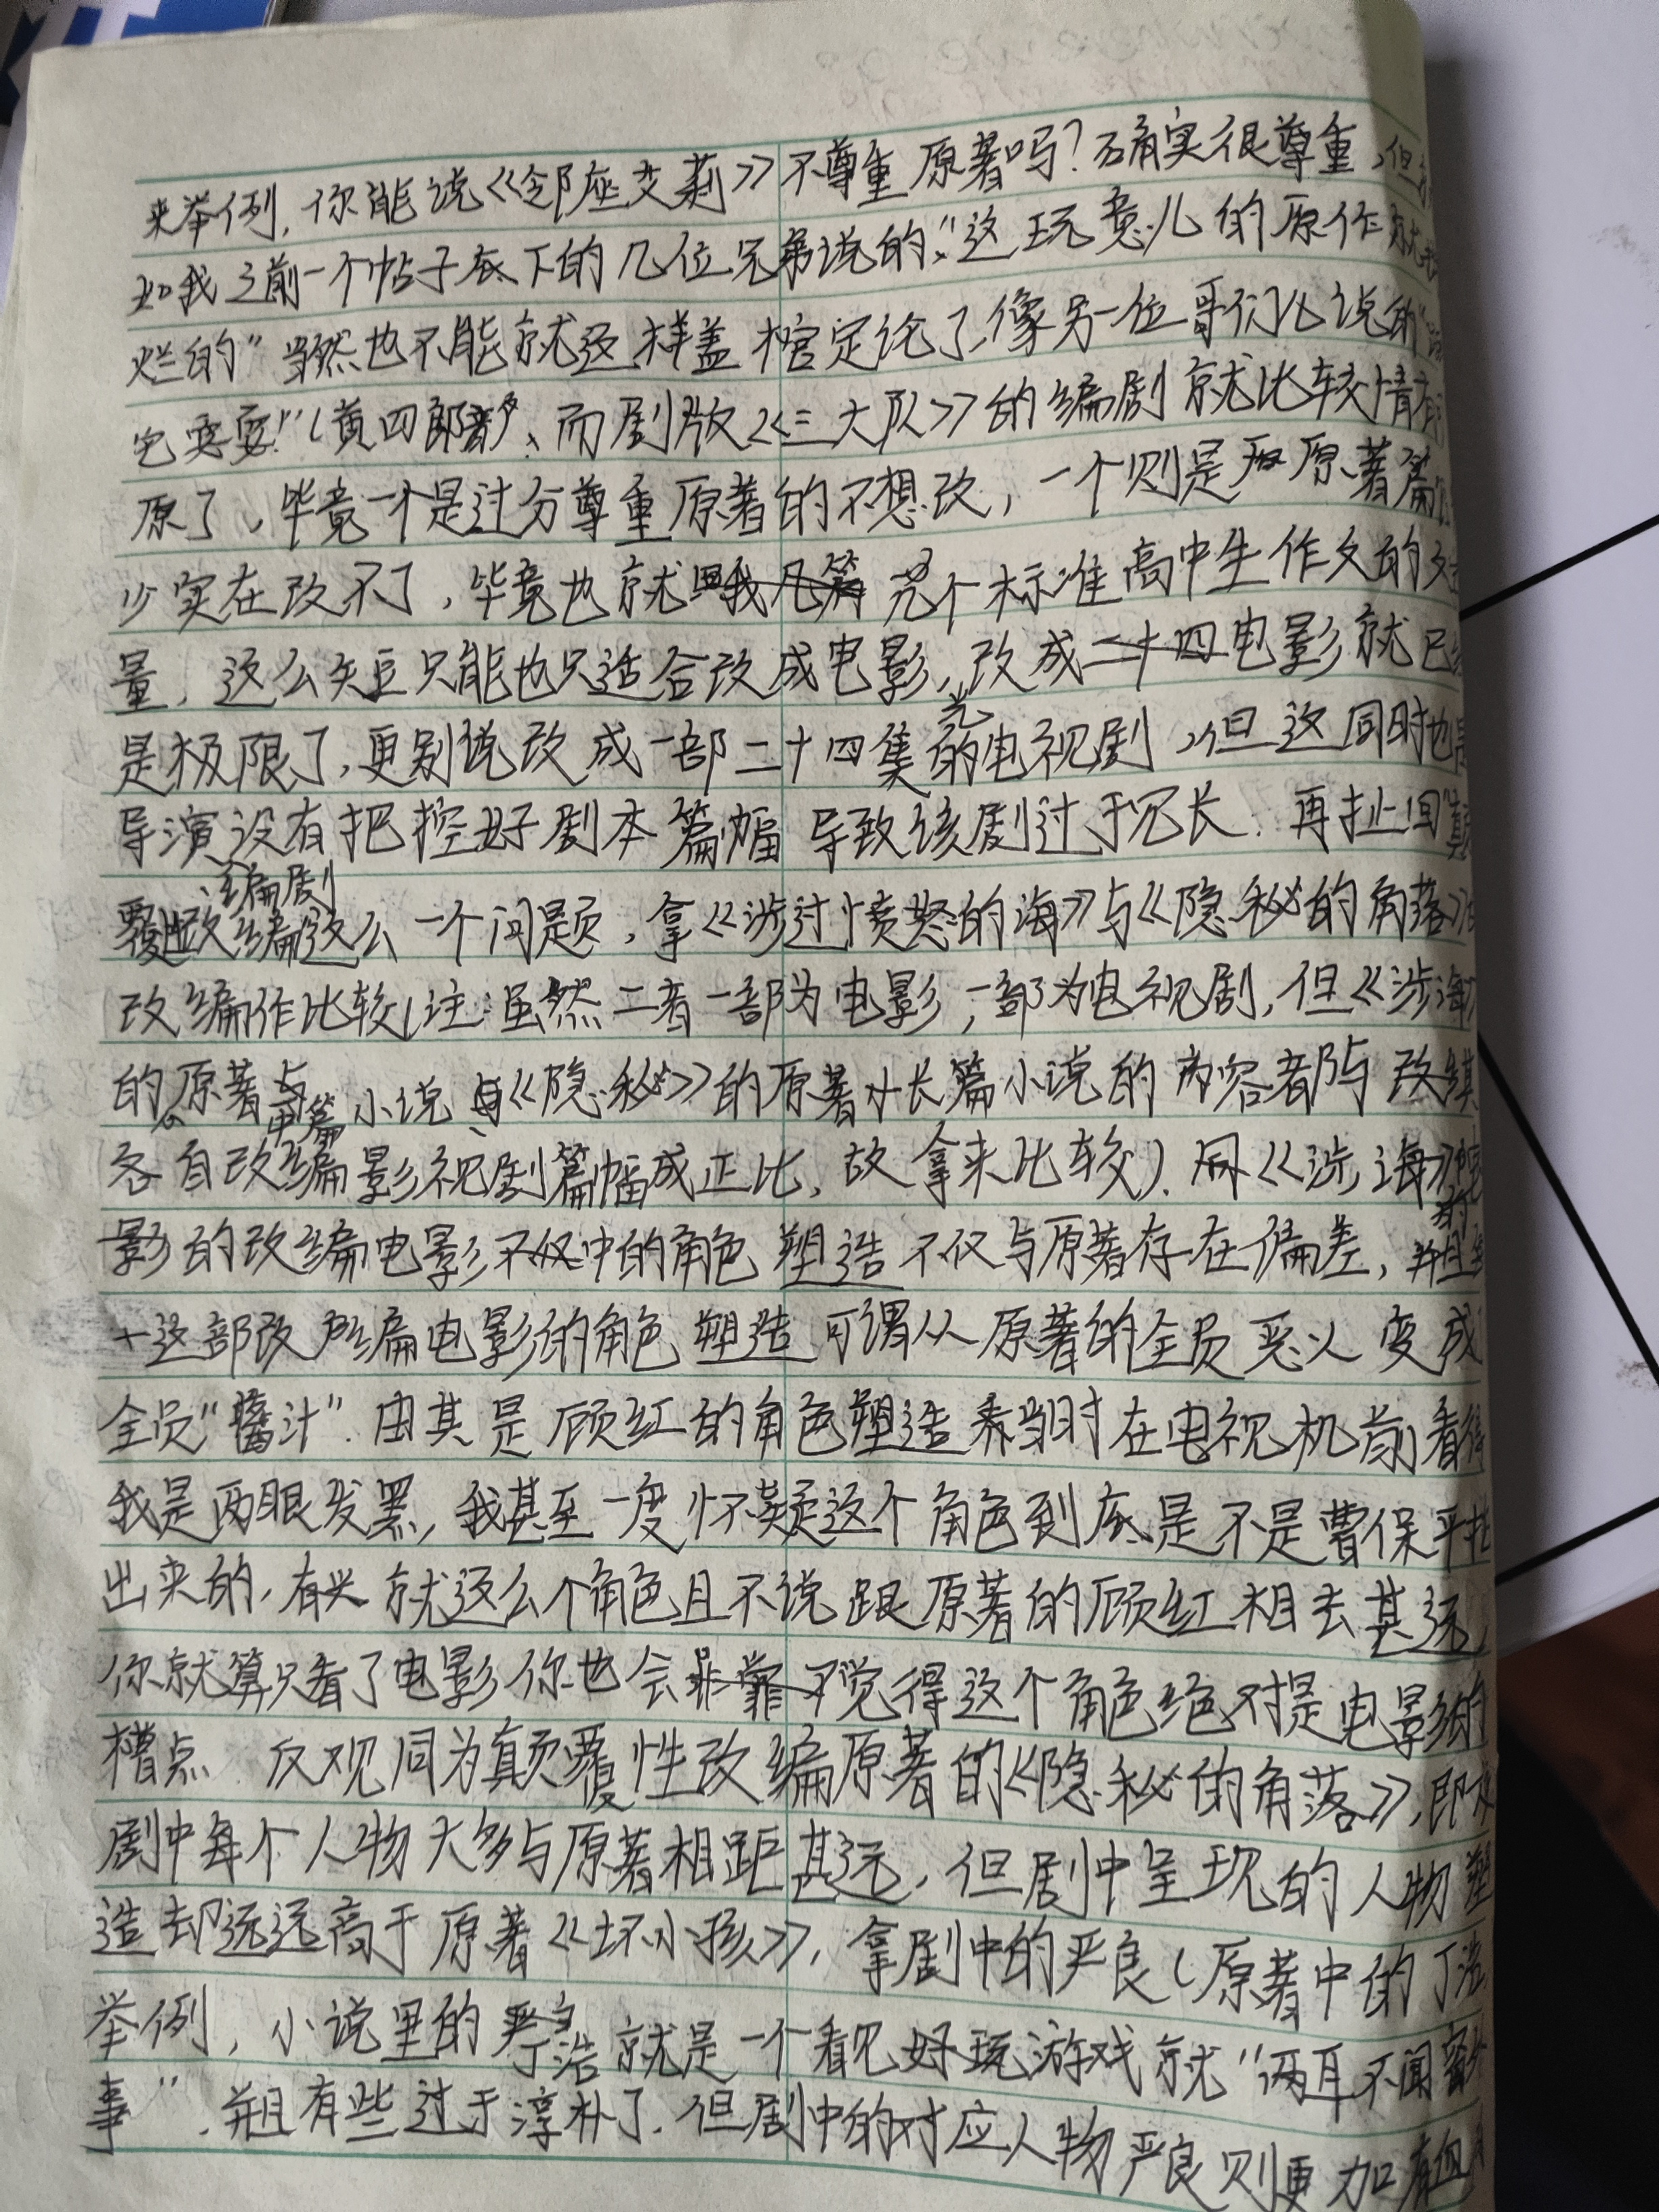 来举例,你能说《邻座艾莉》不尊重原著吗?确实很尊重,但
如我之前一个帖子底下的几位兄弟说的:"这玩意儿的原作就
烂的"当然也不能就这样盖棺定论了,像另一位哥们儿说的"
(黄四郎音),而剧版《三大队》的编剧就比较情有
原了,毕竟一个是过分尊重原著的不想改,一个则是原著篇
少实在改不了,毕竟也就几个标准高中生作文的
量,这么短只能也只适合改成电影,改成电影就已
是极限了,更别说改成一部二十四集的电视剧,但这同时也是
导演没有把控好剧本篇幅导致该剧过于冗长.再扯回"颠
覆改编这么一个问题,拿《涉过愤怒的海》与《隐秘的角落》
改编作比较(注:虽然二者一部为电影,一部为电视剧,但《涉海
的原著中篇小说与《隐秘》的原著长篇小说的内容都与改
各自改编影视剧篇幅成正比,故拿来比较).《涉海》
影的改编电影中的角色塑造不仅与原著存在偏差,并且
这部改编电影的角色塑造可谓从原著的全员恶人变成
全员"酱汁".由其是顾红的角色塑造当时在电视机前看得
我是两眼发黑,我甚至一度怀疑这个角色到底是不是曹保平拍
出来的,就这么个角色且不说跟原著的顾红相去甚远
你就算只看了电影你也会觉得这个角色绝对是电影的
槽点.反观同为颠覆性改编原著的《隐秘的角落》,即
剧中每个人物大多与原著相距甚远,但剧中呈现的人物塑
造却远远高于原著《坏小孩》,拿剧中的严良(原著中的丁浩
举例,小说里的丁浩就是一个看见好玩游戏就"两耳不闻窗外
事",并且有些过于淳朴了.但剧中的对应人物严良则更加有血